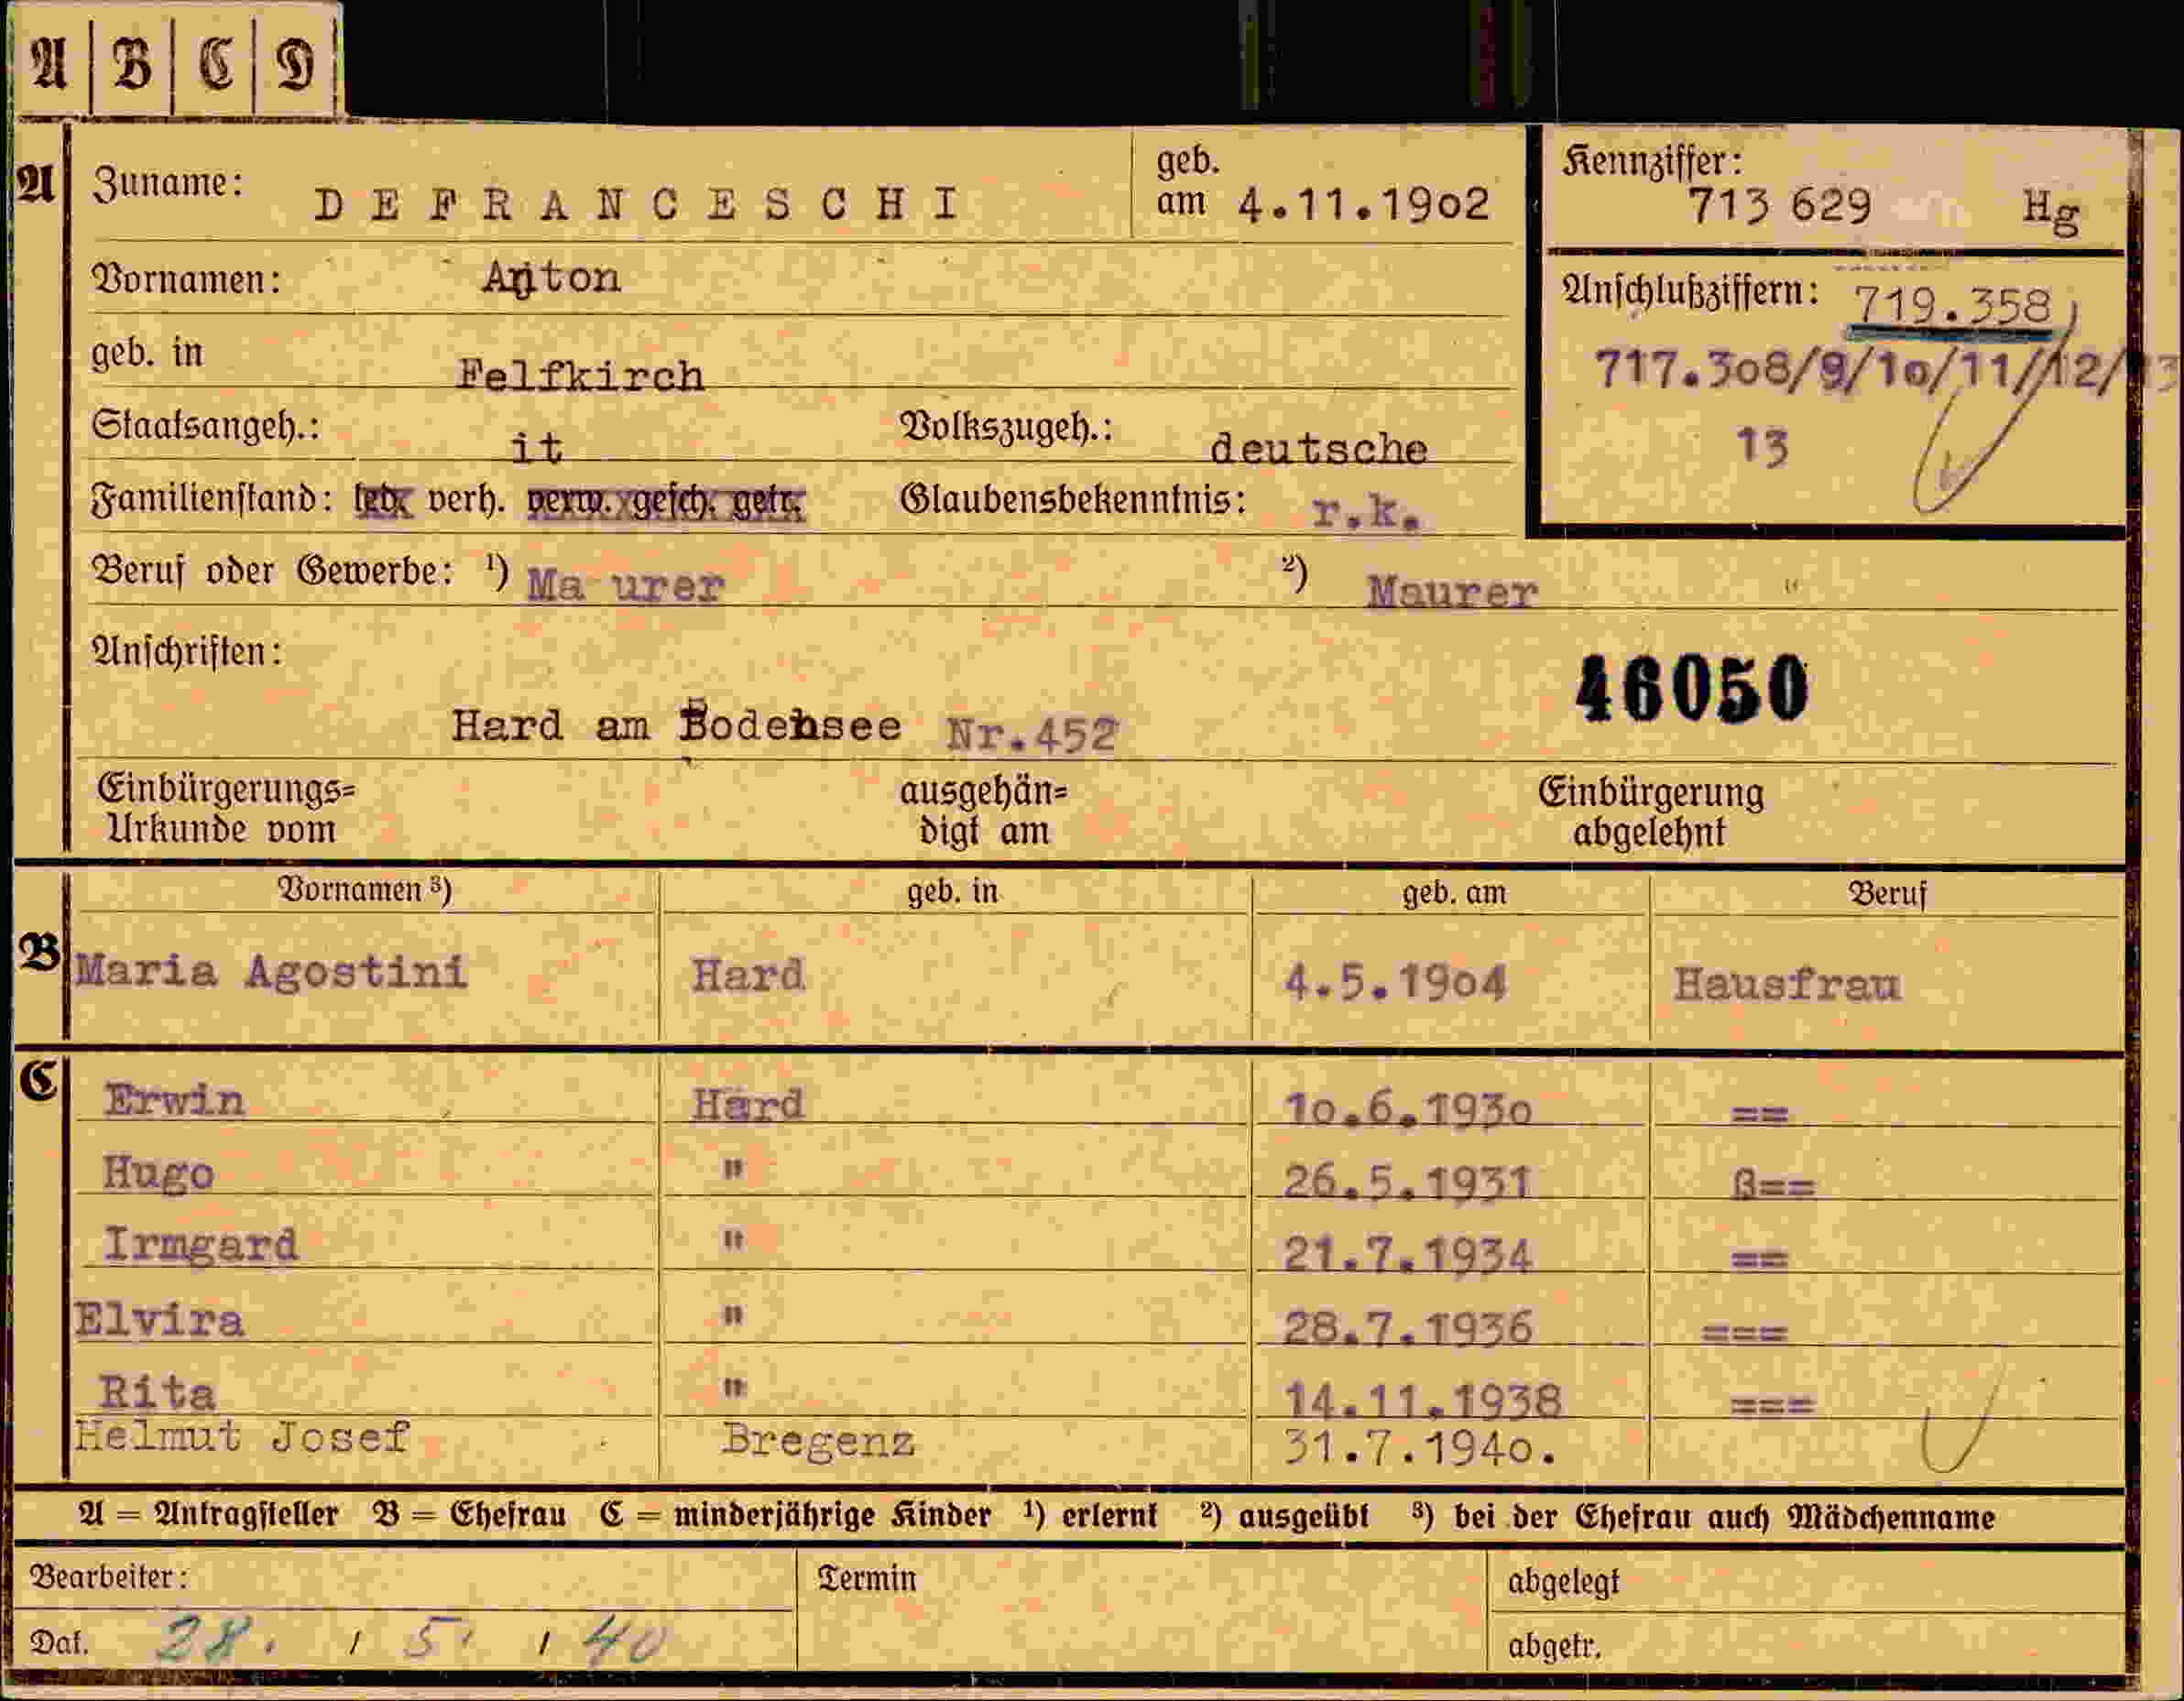 A | B | C | D
A Zuname: DEFRANCESCHI geb. am 4.11.1902
Kennziffer: 713 629 Hg
Vornamen: Anton
Anschlußziffern: 719.358
717.308/9/10/11/12/13
13
geb. in Felfkirch
Staatsangeh.: it Volkszugeh.: deutsche
Familienstand: led. verh. verw. gesch. getr. Glaubensbekenntnis: r.k.
Beruf oder Gewerbe: ¹) Ma urer ²) Maurer
Anschriften:
46050
Hard am Bodensee Nr.452
Einbürgerungs= Urkunde vom
ausgehän= digt am
Einbürgerung abgelehnt
Vornamen ³) geb. in geb. am Beruf
B Maria Agostini Hard 4.5.1904 Hausfrau
C Erwin Hard 10.6.1930 ==
Hugo " 26.5.1931 ß==
Irmgard " 21.7.1934 ==
Elvira " 28.7.1936 ===
Rita " 14.11.1938 ===
Helmut Josef Bregenz 31.7.1940.
A = Antragsteller B = Ehefrau C = minderjährige Kinder ¹) erlernt ²) ausgeübt ³) bei der Ehefrau auch Mädchenname
Bearbeiter: Termin abgelegt
Dat. 28. / 5. / 40 abgetr.